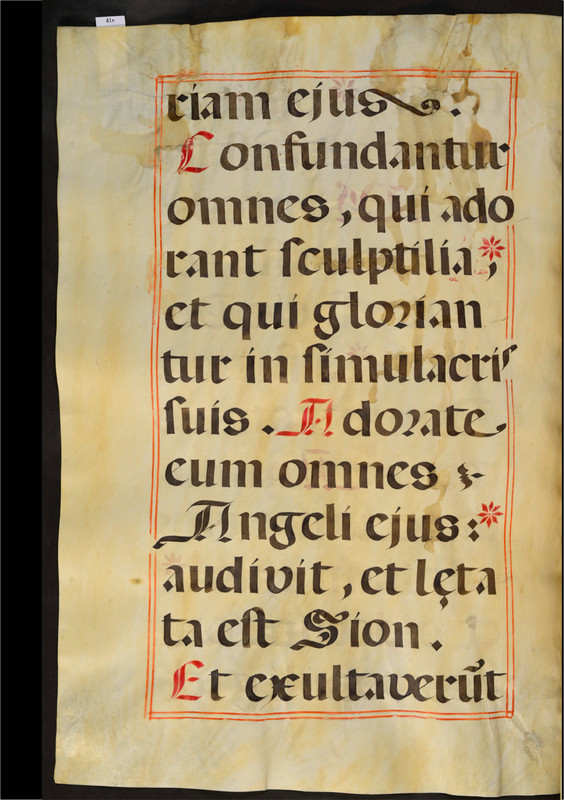 41v
riam ejus.
Confundantur
omnes, qui ado
rant ſculptilia,*
et qui glorian
tur in ſimulacris
ſuis. Adorate
eum omnes
Angeli ejus:*
audivit, et lęta
ta eſt Sion.
Et exultaverūt